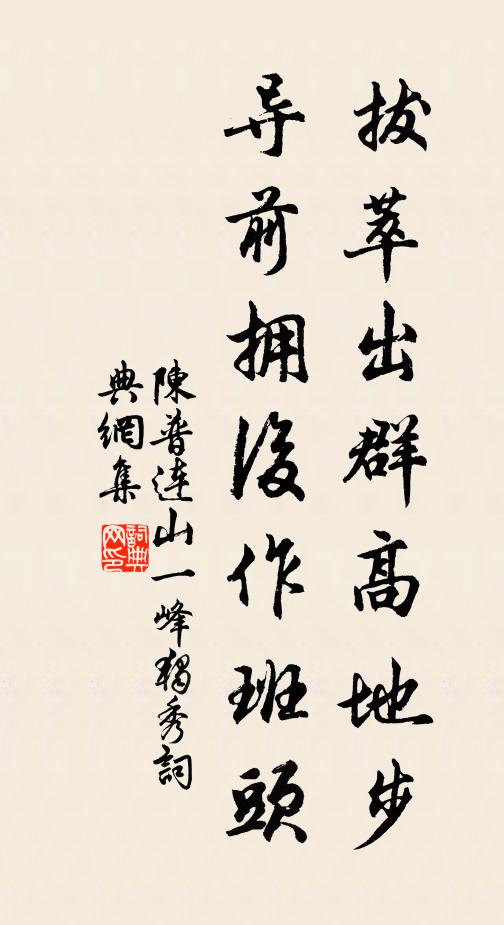 拔萃出群高地步
导前拥後作班頭
陳普连山一峰獨秀詞
典網集
詞典
网印